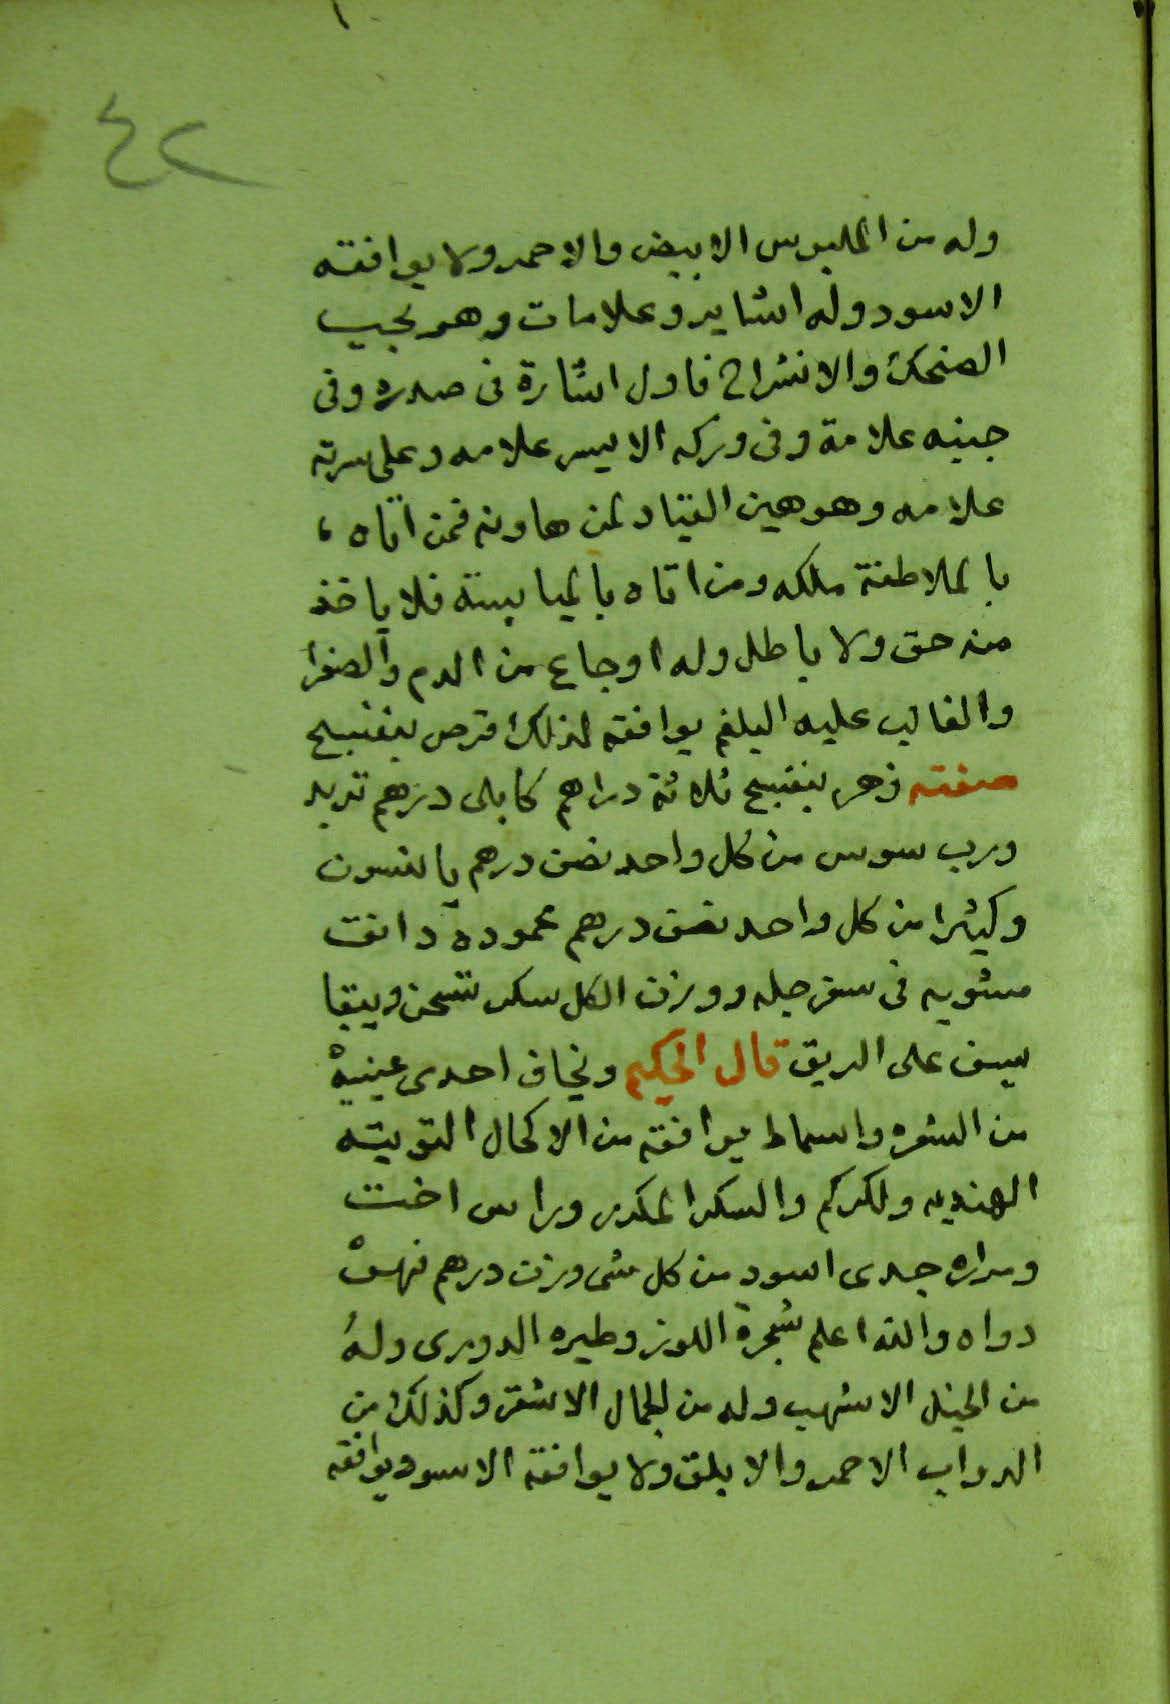 ٤٢
وله من الملبوس الابيض والاحمر ولا يوافقه
الاسود وله اشاير وعلامات وهو يحب
الضحك والانشراح فاول اشارة فى صدره وفى
جبينه علامة وفى وركه الايسر علامه وعلى سرته
علامه وهو هين القياد لمن هاونه فمن اتاه
بالملاطفة ملكه ومن اتاه باليابسة فلا ياخذ
منه حق ولا باطل وله اوجاع من الدم والصفرا
والغالب عليه البلغم يوافقه لذلك قرص بنفسج
صفته زهر بنفسج ثلاثة دراهم كابلى درهم تربد
ورب سوس من كل واحد نصف درهم يانسون
وكثيرا من كل واحد نصف درهم محموده دانق
مشويه فى سفرجله ووزن الكل سكر تسحق ويبقا
يسف على الريق قال الحكيم ويخاف احدى عينيه
من الشعره واسماط يوافقه من الاكحال التوتيه
الهنديه ولكركم والسكر المكرر وراس اخت
ومراره جدى اسود من كل شى وزن درهم فهو
دواه والله اعلم شجرة اللوز وطيره الدورى وله
من الخيل الاشهب وله من الجمال الاشقر وكذلك من
الدواب الاحمر والابلق ولا يوافقه الاسود يوافقه